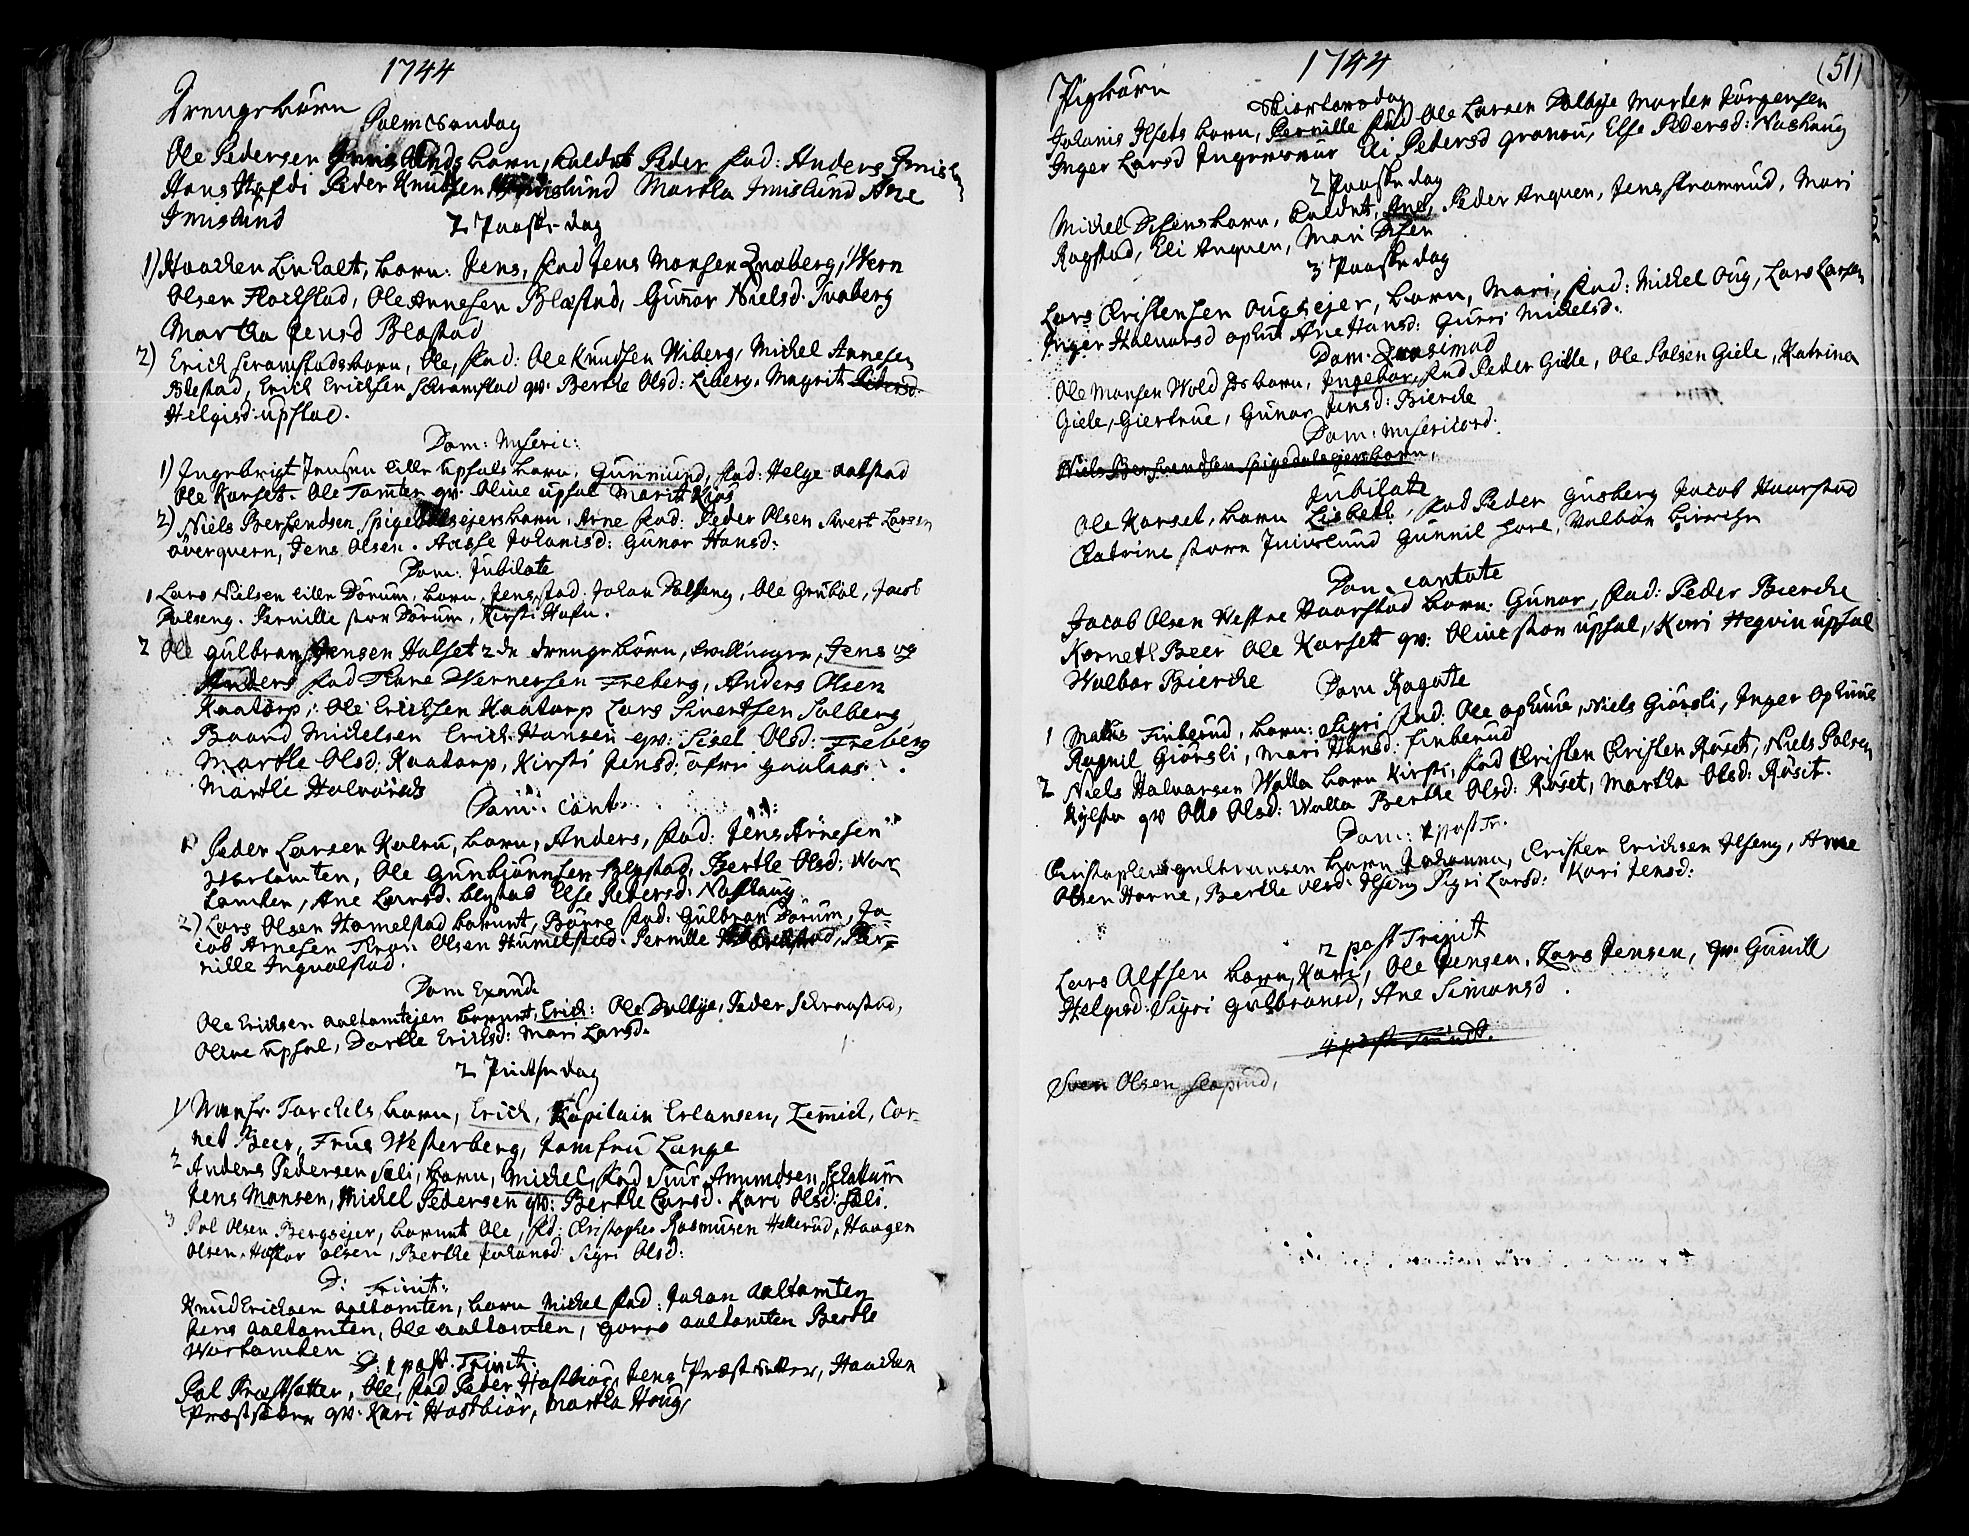 1744
Drengebørn
Palmesondag
Ole Pedersen Imislunds barn, kaldet Peder fad: Anders Imisl
Hans Hofdi Peder Knudsen Imislund Martha Imislund Ane
Imislund
2 Paaske dag
1) Haachen Linholt, barn: Jens, fad Jens Monsen Snaberg, Wern
Olsen Flochstad, Ole Arnesen Blæstad, Gunor Nielsd. Snaberg
Martha Jensd Blæstad
2) Erich Scramstads barn, Ole, fad: Ole Knudsen Wiberg, Michel Arnesen
Blestad, Erich Erichsen Scramstad qv: Berthe Olsd: Liberg, Magrit Pedersd.
Helgisd: upstad.
Dom: Miseric:
1) Ingebrigt Jensen lille upsals barn, Gunmund, fad: Helge aalstad
Ole Korset. Ole Tomter qv. Oline upsal Marit Kios
2) Niels Berhendsen Spigedalsejers barn, Arne fad: Peder Olsen Sivert Larsen
överquern, Jens Olsen. Aasse Johanisd: Gunor Hansd:
Dom: Jubilate
1 Lars Nielsen lille Dörum, barn, Jens, fad. Johan Dalseng, Ole Grubol, Jacob
Dalseng. Pernille stor Dörum, Kirsti Hafn.
2 Ole Gulbrandsen Halset 2de drengebörn, tvillinger, Jens og
Anders fad Thore Wernersen Freberg, Anders Olsen
Kaatorp, Ole Erichsen Kaatorp Lars Sivertsen Solberg
Baard Michelsen Erich Hansen qv: Sisel Olsd: Freberg
Marthe Olsd: Kaatorp, Kirsti Jensd: öfre gaalaas
Marthe Halvorsd
Dom: Cant:
1) Peder Larsen Kolru, barn, Anders, fad: Jens Arnesen
Wortomten, Ole Gunbjörnsen Blystad, Berthe Olsd: Wor
tomten, Ane Larsd: blystad Else Pedersd: Nashaug
2) Lars Olsen Homelstad barnnt, Börre fad: Gulbran Dörum, Ja-
cob Arnesen Tron Olsen Humelstad. Pernille, Per-
nille Ingvalstad.
Dom Exaudi
Ole Erichsen aaltomtejen barnnt, Erich: Ole Dalbye, Peder Schrarstad,
Oline upsal, Dorthe Erichsd: Mari Larsd.
2 Pintse dag
1) Monfr. Torchels barn, Erich, Kapitain Erlansen, Lemich, Cor-
net Beer, Frue Westerberg, Jomfru Lange
2 Anders Pedersen Sæli, barn, Michel, fad Siur Amundsen Sclattum
Jens Monsen, Michel Pedersen qv: Berthe Larsd. Kari Olsd: Sæli.
3 Pol Olsen Bergsejer, barnnt Ole, fad: Christopher Rasmusen Hellerud, Haagen
Olsen, Haftor olsen, Berthe Johansd: Sigri Olsd:
D: Trinit:
Knud Erichsen aaltomten, barn Michel fad: Johan aaltomten
Jens aaltomten, Ole aaltomten, Gorro aaltomten Berthe
Wortomten
D: 1 post. Trinit:
Pol Præstsætter, Ole, fad Peder Hostbiör, Jens Præstsætter, Haachen
Præstsætter qv: Kari Hostbiör, Martha Houg,
1744 (51)
Pigbörn
Skiertorsdag
Johanis Ilsets barn, Pernille fad Ole Larsen Dalbye Morten Jörgensen
Inger Larsd Ingersrur Eli Pedersd Gronou, Else Pedersd: Nashaug
2 Paaske dag
Michel Disens barn, kaldet, Ane, Peder Anquen, Jens Stramrud, Mari
Rogstad, Eli Anquen, Mari Disen
3 Paaske dag
Lars Christensen Ougsejer, barn, Mari, fad: Michel Oug, Lars Larsen
Inger Halvorsd ophus Ane Hansd: Gurri Michelsd:
Dom. Quasimod
Ole Monsen Wold barn, Ingebor, fad Peder Gille, Ole Polsen Giele, Katrina
Giele, Giertrue, Gunor Jensd: Bierche
Dom: misericord.
Niels Berhendsen Spigedalsejers barn,
Jubilate
Ole Korset, barn Lisbeth, fad Peder Gusberg Jacob Haarstad
Catrine storn Imislund Gunnil, Valbor Bierche
Dom. cantate
Jacob Olsen Westre Haarstad barn: Gunor, fad: Peder Bierche
Korneth Beer Ole Korsett qv: Oline stor upsal, Kari Hegvin upsal
Walbor Bierche
Dom Rogate
1 Mattis Finberud, barn: Sigri fad: Ole ophuus, Niels Giörsli, Inger ophuus
Ragnil Giörsli, Mari Hansd: finberud
2 Niels Halvorsen Walla barn Kirsti, fad Christen Christen Röset, Niels Polsen
Kylsta qv Olle Olsd: Walla Berthe Olsd: Röset, Martha Olsd: Röset.
Dom: 1 post Tr.
Christopher gulbransen barn Johanna, Christen Erichsen Ilseng, Arne
Olsen Horne, Berthe olsd. Ilseng Sigri Larsd: Kari Jensd:
2 post Trinit
Lars Alfsen barn, Kari, Ole Jensen, Lars Jensen, qv. Gunill
Helgesd. Sigri gulbransd, Ane Simonsd.
4 post Trinit.
Sven Olsen,